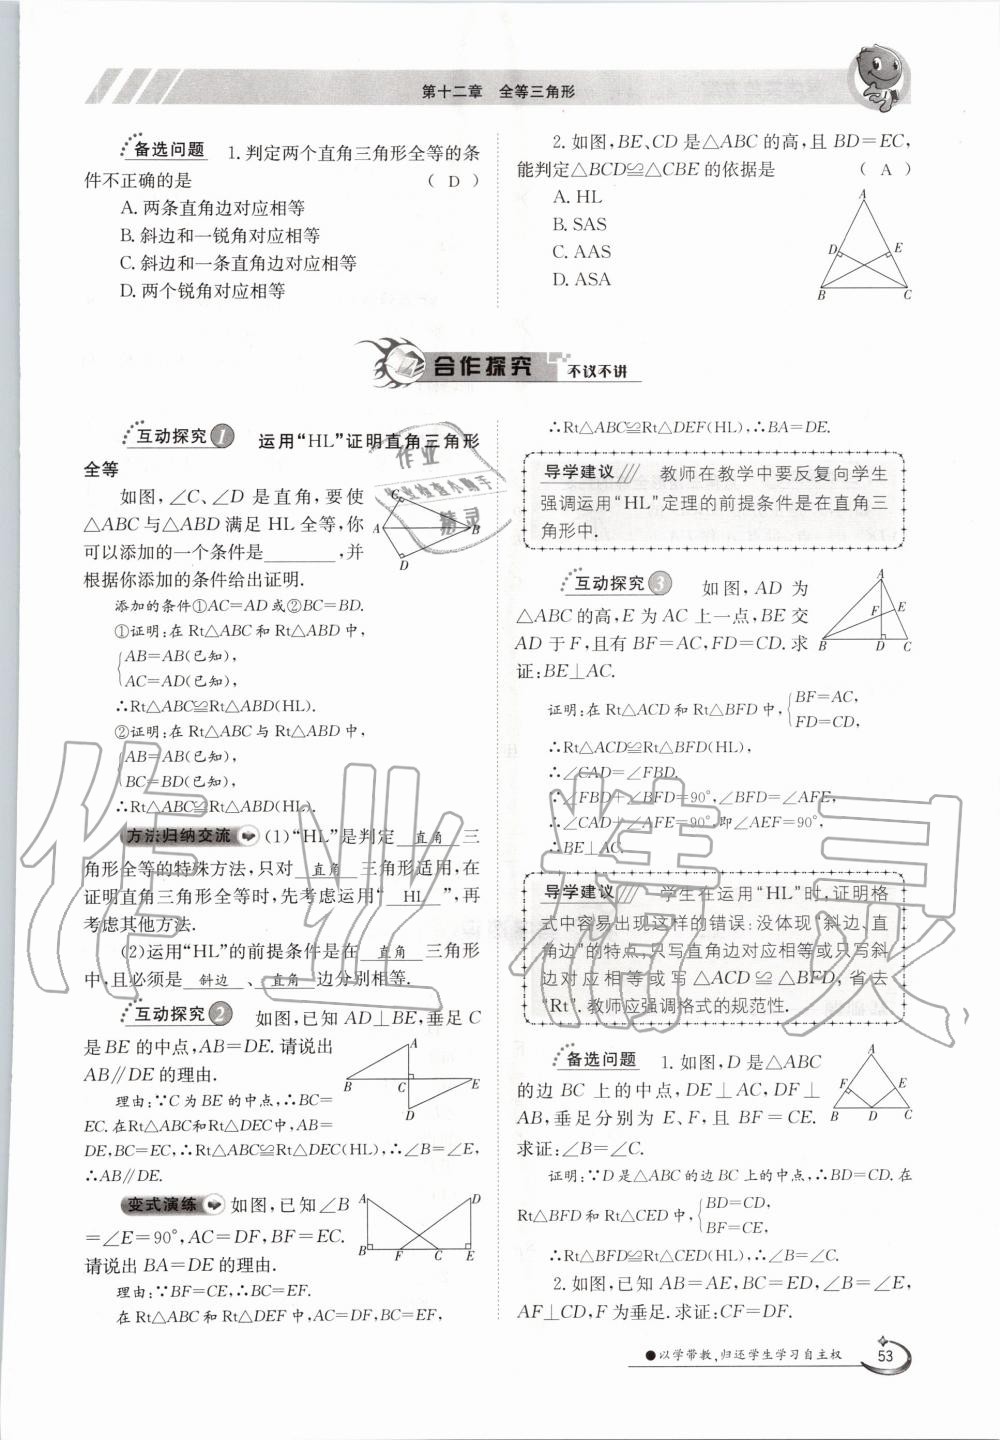 第十二章 全等三角形
备选问题 1.判定两个直角三角形全等的条
件不正确的是 ( D )
A.两条直角边对应相等
B.斜边和一锐角对应相等
C.斜边和一条直角边对应相等
D.两个锐角对应相等
2.如图,BE、CD是△ABC的高,且BD=EC,
能判定△BCD≌△CBE的依据是 ( A )
A.HL
B.SAS
C.AAS
D.ASA
A
D
E
B
C
合作探究 不议不讲
互动探究1 运用“HL”证明直角三角形
全等
如图,∠C、∠D是直角,要使
△ABC与△ABD满足HL全等,你
可以添加的一个条件是______,并
根据你添加的条件给出证明.
C
A
B
D
添加的条件①AC=AD或②BC=BD.
①证明:在Rt△ABC和Rt△ABD中,
AB=AB(已知),
AC=AD(已知),
∴Rt△ABC≌Rt△ABD(HL).
②证明:在Rt△ABC与Rt△ABD中,
AB=AB(已知),
BC=BD(已知),
∴Rt△ABC≌Rt△ABD(HL).
方法归纳交流 (1)“HL”是判定 直角 三
角形全等的特殊方法,只对 直角 三角形适用,在
证明直角三角形全等时,先考虑运用“ HL ”,再
考虑其他方法.
(2)运用“HL”的前提条件是在 直角 三角形
中,且必须是 斜边 、 直角 边分别相等.
互动探究2 如图,已知AD⊥BE,垂足C
是BE的中点,AB=DE.请说出
AB∥DE的理由.
A
B
C
E
D
理由:∵C为BE的中点,∴BC=
EC.在Rt△ABC和Rt△DEC中,AB=
DE,BC=EC,∴Rt△ABC≌Rt△DEC(HL),∴∠B=∠E,
∴AB∥DE.
变式演练 如图,已知∠B
=∠E=90°,AC=DF,BF=EC.
请说出BA=DE的理由.
A
D
B
F
C
E
理由:∵BF=CE,∴BC=EF.
在Rt△ABC和Rt△DEF中,AC=DF,BC=EF,
∴Rt△ABC≌Rt△DEF(HL),∴BA=DE.
导学建议 教师在教学中要反复向学生
强调运用“HL”定理的前提条件是在直角三
角形中.
互动探究3 如图,AD为
△ABC的高,E为AC上一点,BE交
AD于F,且有BF=AC,FD=CD.求
证:BE⊥AC.
A
F
E
B
D
C
证明:在Rt△ACD和Rt△BFD中,
BF=AC,
FD=CD,
∴Rt△ACD≌Rt△BFD(HL),
∴∠CAD=∠FBD.
∴∠FBD+∠BFD=90°,∠BFD=∠AFE,
∴∠CAD+∠AFE=90°,即∠AEF=90°,
∴BE⊥AC.
导学建议 学生在运用“HL”时,证明格
式中容易出现这样的错误:没体现“斜边、直
角边”的特点,只写直角边对应相等或只写斜
边对应相等或写△ACD≌△BFD,省去
“Rt”.教师应强调格式的规范性.
备选问题 1.如图,D是△ABC
的边BC上的中点,DE⊥AC,DF⊥
AB,垂足分别为E、F,且BF=CE.
求证:∠B=∠C.
A
F
E
B
D
C
证明:∵D是△ABC的边BC上的中点,∴BD=CD.在
Rt△BFD和Rt△CED中,
BD=CD,
BF=CE,
∴Rt△BFD≌Rt△CED(HL),∴∠B=∠C.
2.如图,已知AB=AE,BC=ED,∠B=∠E,
AF⊥CD,F为垂足.求证:CF=DF.
●以学带教,归还学生学习自主权
53
作业精灵
作业
作业检查小助手
精灵